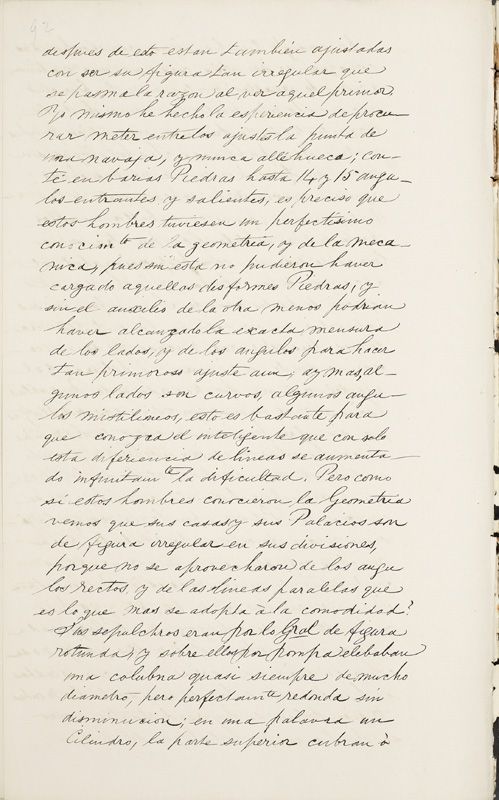 92
despues de esto estan tambien ajustadas
con ser su figura tan irregular que
se pasma la razon al ver aquel primor.
Yo mismo he hecho la esperiencia de procu-
rar meter entre los ajustes la punta de
una navaja, y nunca allé hueca; con-
té en barias Piedras hasta 14 y 15 angu-
los entrantes y salientes, es preciso que
estos hombres tuviesen un perfectisimo
conocimto de la geometria, y de la meca-
nica, pues sin esta no pudieron haver
cargado aquellas disformes Piedras, y
sin el auxilio de la otra menos podrian
haver alcanzado la exacta mensura
de los lados, y de los angulos para hacer
tan primoroso ajuste aun; ay mas, al-
gunos lados son curvos, algunos angu-
los mistilineos, esto es bastante para
que conozca el inteligente que con solo
esta diferiencia de lineas se aumenta-
do infinitamte la dificultad. Pero como
si estos hombres conocieron la Geometria
vemos que sus casas y sus Palacios son
de figura irregular en sus divisiones,
porque no se aprovecharon de los angu
los rectos, y de las lineas paralelas que
es lo que mas se adopta à la comodidad?
Sus sepulchros eran por lo Gral de figura
rotunda, y sobre ellos por pompa elebaban
una colubna quasi siempre de mucho
diametro, pero perfectamte redonda sin
disminucion; en una palavra un
Cilindro, la parte superior cubran à